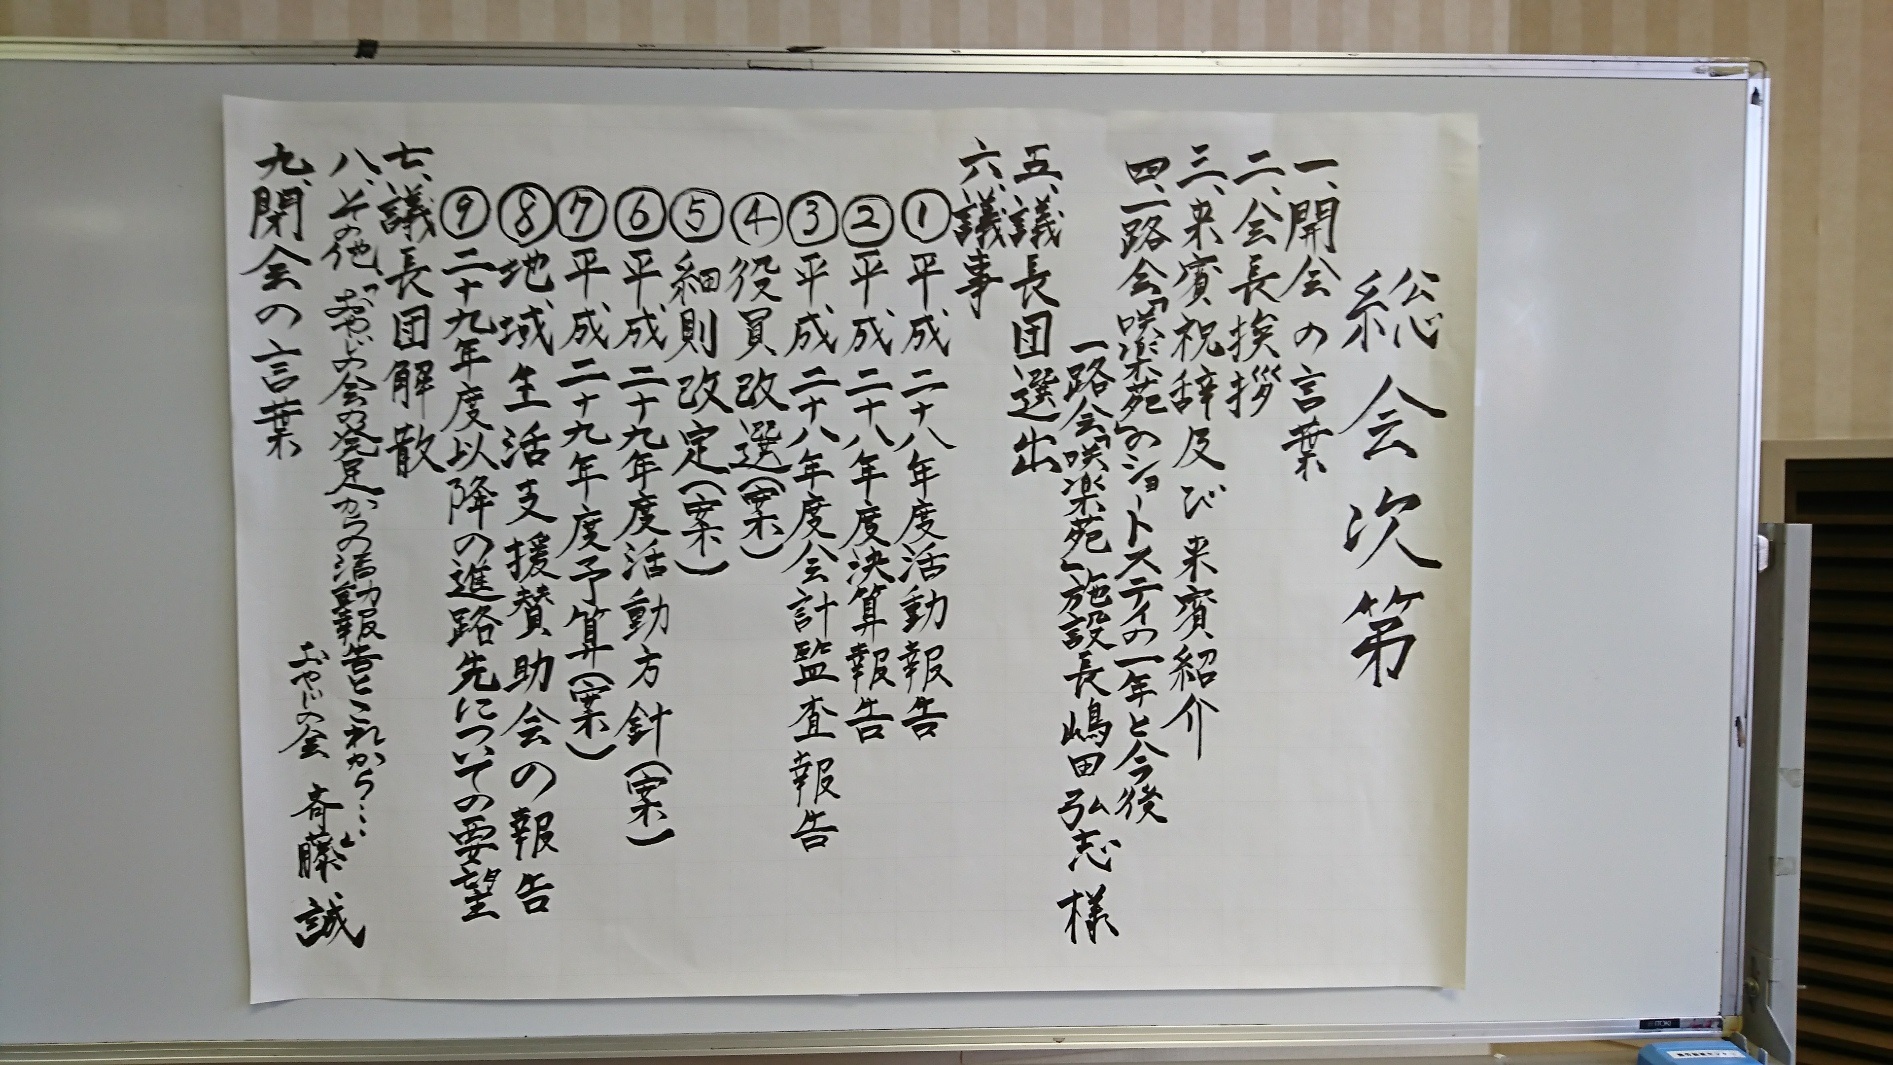 総会次第
一、開会の言葉
二、会長挨拶
三、来賓祝辞及び来賓紹介
四、一路会「咲楽苑」のショートスティの一年と今後
一路会「咲楽苑」施設長嶋田弘志様
五、議長団選出
六、議事
①平成二十八年度活動報告
②平成二十八年度決算報告
③平成二十八年度会計監査報告
④役員改選(案)
⑤細則改定(案)
⑥平成二十九年度活動方針(案)
⑦平成二十九年度予算(案)
⑧地域生活支援賛助会の報告
⑨二十九年度以降の進路先についての要望
七、議長団解散
八、その他「おやじの会の発足からの活動報告とこれから…」
おやじの会 斉藤 誠
九、閉会の言葉